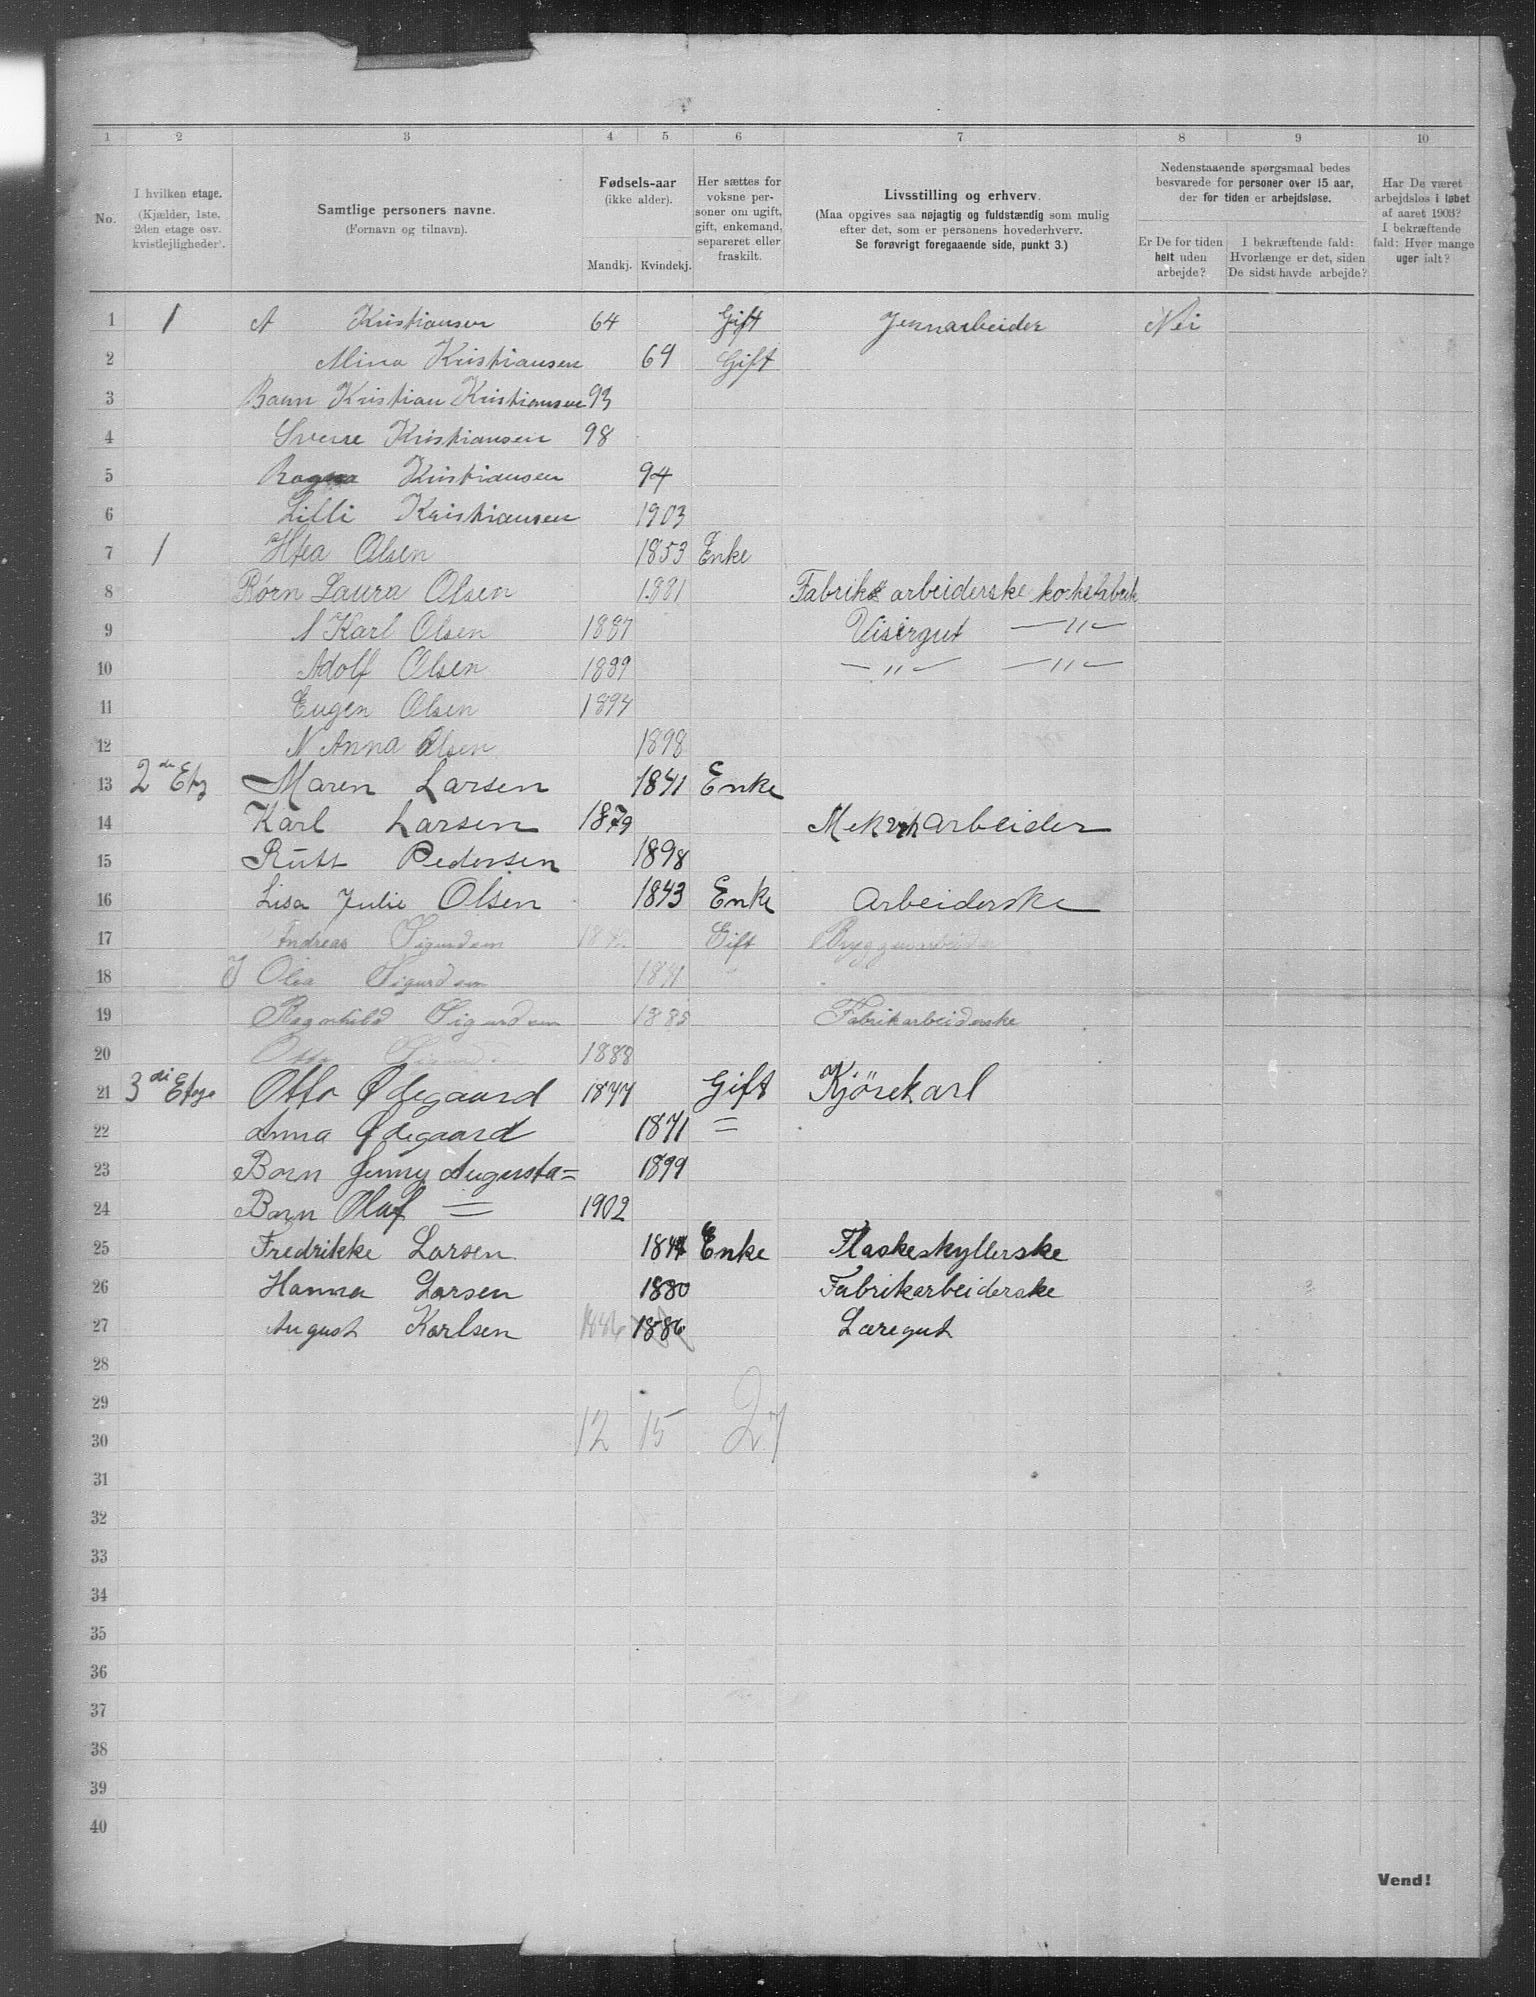 1 2 3 4 5 6 7 8 9 10
No.
I hvilken etage.
(Kjælder, 1ste.
2den etage osv.
kvistlejligheder).
Samtlige personers navne.
(Fornavn og tilnavn).
Fødsels-aar
(ikke alder).
Mandkj. Kvindekj.
Her sættes for
voksne per-
soner om ugift,
gift, enkemand,
separeret eller
fraskilt.
Livsstilling og erhverv.
(Maa opgives saa nøjagtig og fuldstændig som mulig
efter det, som er personens hovederhverv.
Se forøvrigt foregaaende side, punkt 3.)
Nedenstaaende spørgsmaal bedes
besvarede for personer over 15 aar,
der for tiden er arbejdsløse.
Er De for tiden
helt uden
arbejde?
I bekræftende fald:
Hvorlænge er det, siden
De sidst havde arbejde?
Har De været
arbejdsløs i løbet
af aaret 1903?
I bekræftende
fald: Hvor mange
uger ialt?
1 1 A Kristiansen 64 Gift Jernarbeider Nei
2 Mina Kristiansen 69 Gift
3 Barn Kristian Kristiansen 93
4 Sverre Kristiansen 98
5 Ragna Kristiansen 94
6 Lilli Kristiansen 1903
7 1 Olsen 1853 Enke
8 Børn Laura Olsen 1881 Fabrik arbeiderske
9 Karl Olsen 1887 Visergut — " —
10 Adolf Olsen 1889 — " — — " —
11 Eugen Olsen 1894
12 N Anna Olsen 1898
13 2de Etg Maren Larsen 1841 Enke
14 Karl Larsen 1879 Mek arbeider
15 Rutt Pedersen 1898
16 Lisa Julie Olsen 1843 Enke Arbeiderske
17 Andreas Sigurdsen Gift Bryggeriarbeider
18 Olea Sigurdsen
19 Ragnhild Sigurdsen 1885 Fabrikarbeiderske
20 Otto Sigurdsen 1888
21 3di Etage Otto Ødegaard 1877 Gift Kjørekarl
22 Anna Ødegaard 1871 =
23 Barn Jenny Augusta = 1899
24 Barn Olaf = 1902
25 Fredrikke Larsen Enke Flaskeskyllerske
26 Hanna Larsen 1880 Fabrikarbeiderske
27 August Karlsen 1886 1886 Læregut
28
29
30 12 15 27
31
32
33
34
35
36
37
38
39
40
Vend!